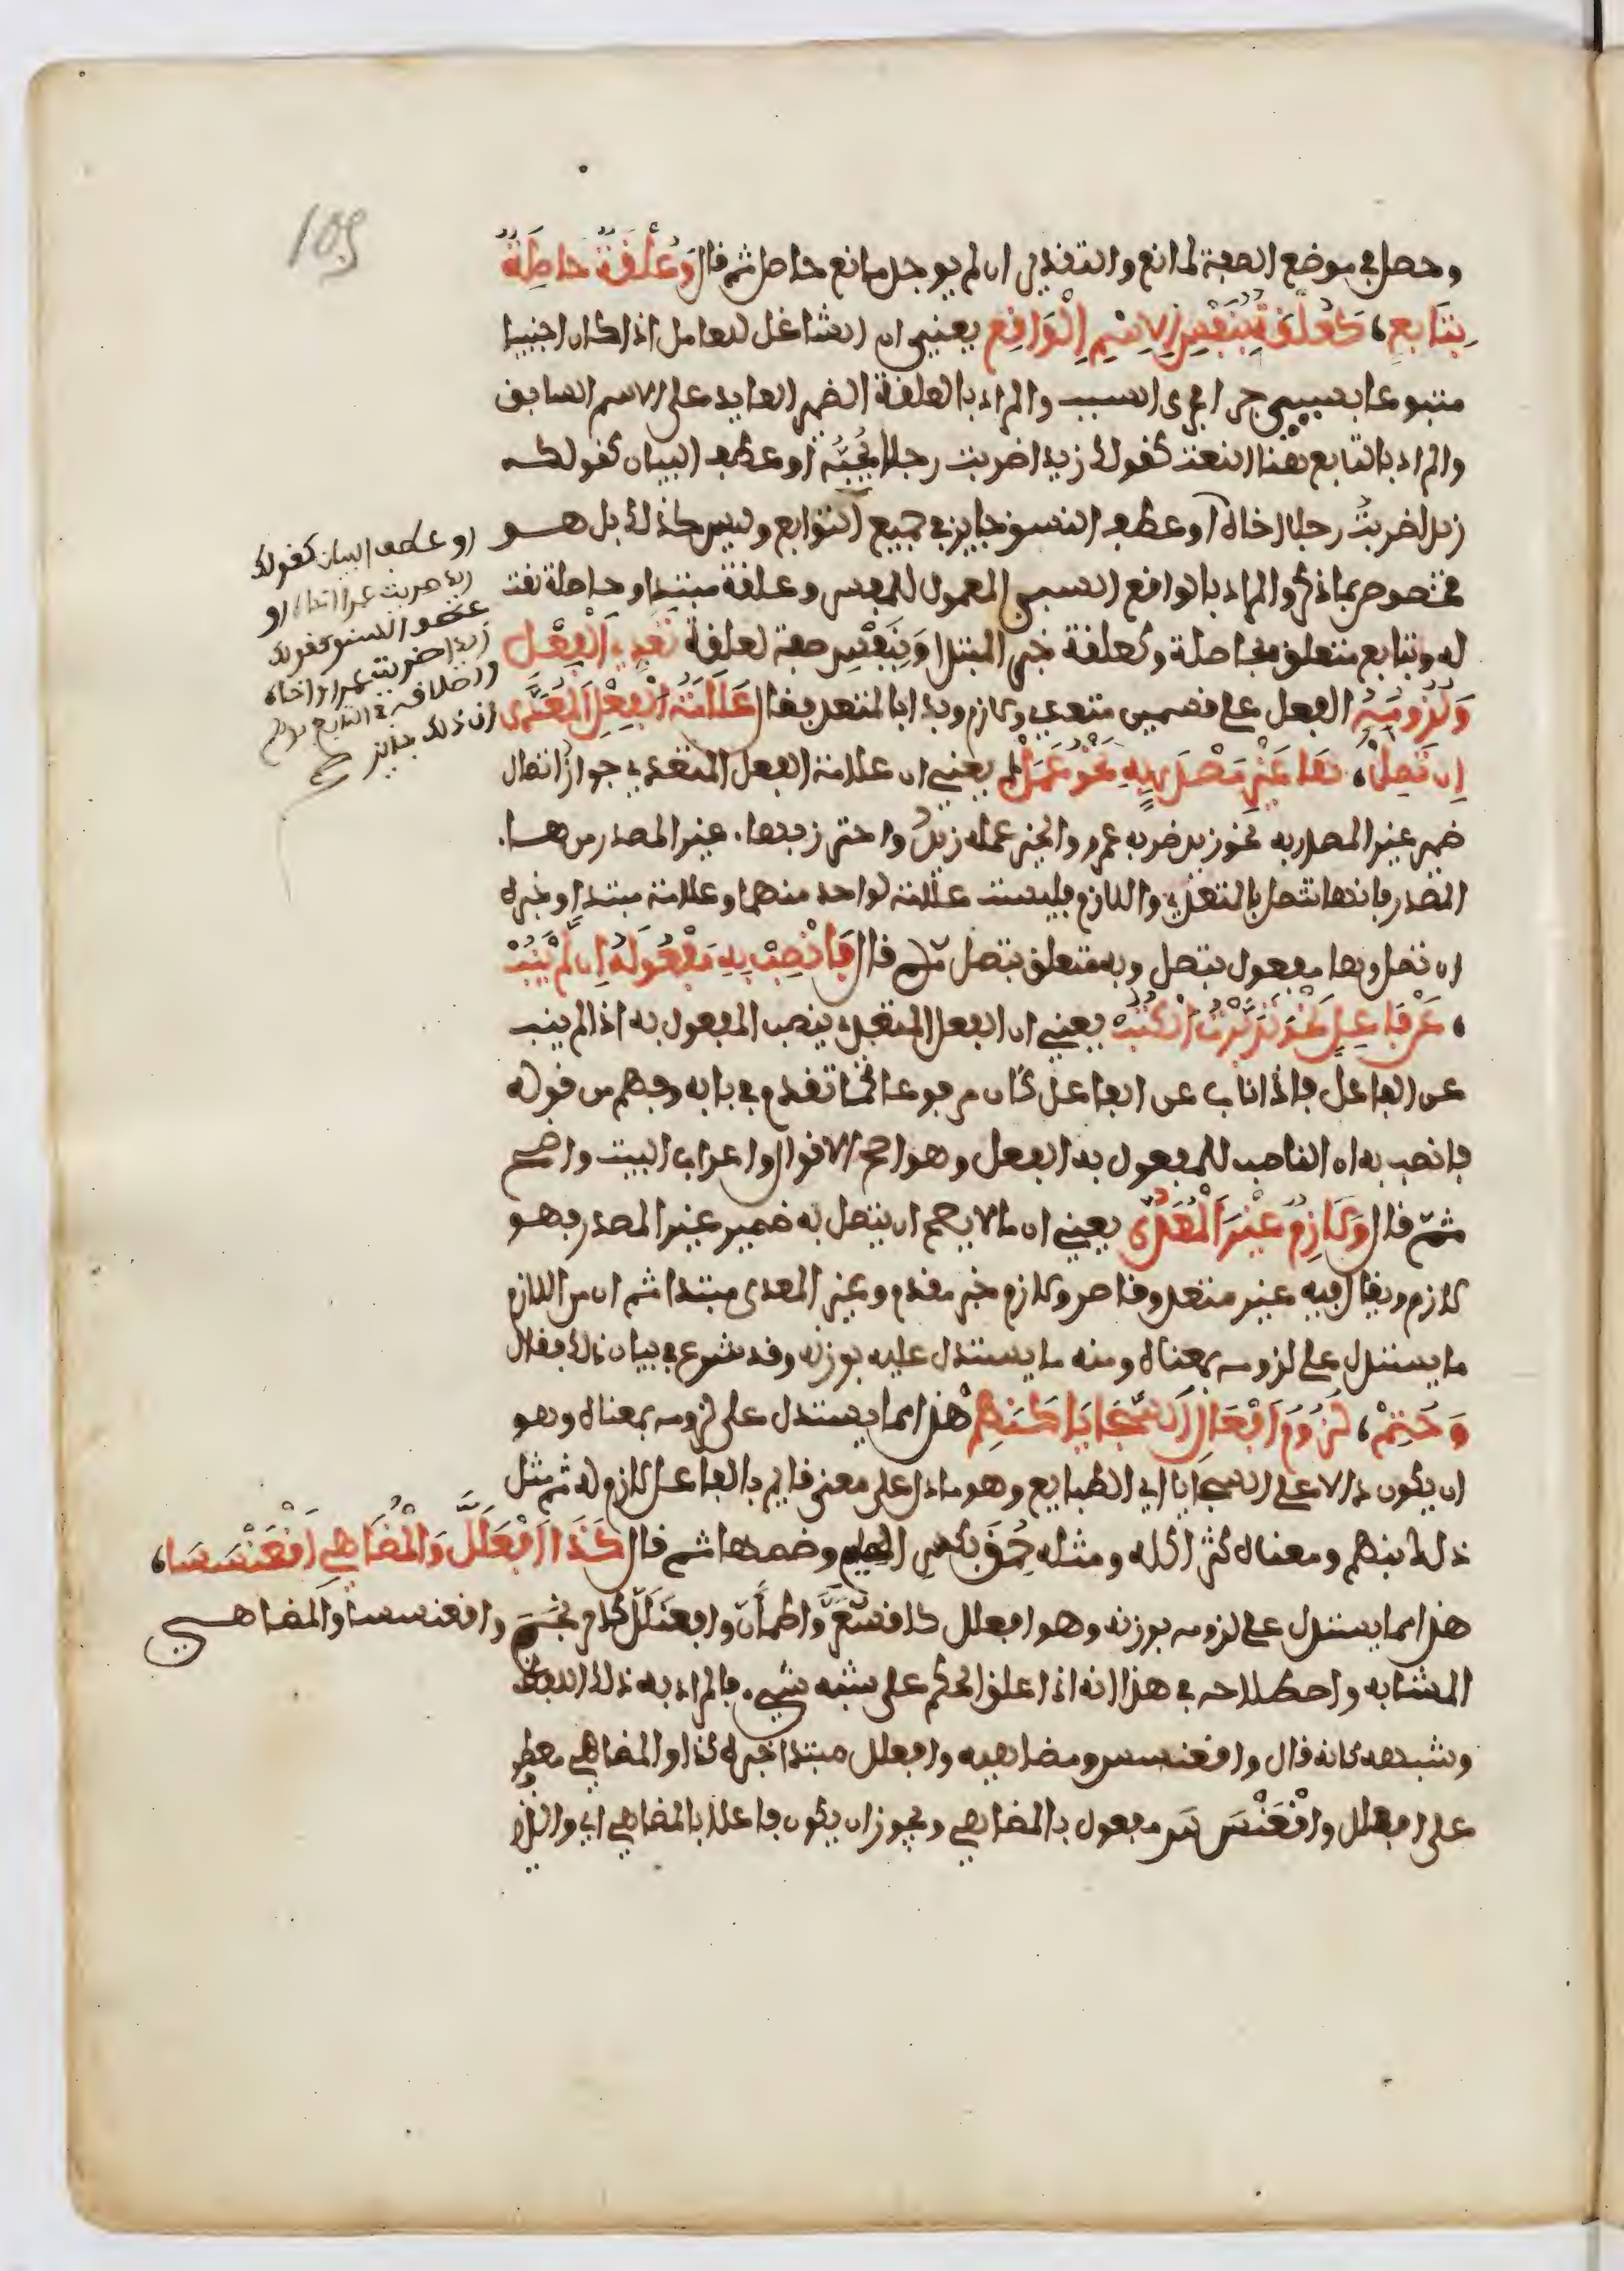 109
وحصل في موضع الصفة لمانع والتقدير ان لم يوجد مانع حاصل ثم قال وَعُلْقَةٌ حاصِلَةٌ
بِتَابِعِ، كَعُلْقَةٍ بِنَفْسِ الاِسْمِ الْوَاقِعِ يعني ان الشاغل للعامل اذا كان اجنبيا
متبوعا بسببي جرا مجرى السبب والمراد بالعلقة الضمير العايد على الاسم السابق
والمراد بالتابع هنا النعت كقولك زيدا ضربت رجلا يُحِبُّهُ او عطف البيان كقولك
زيدا ضربتُ رجلا اخاه او عطف النسق جايز في جميع التوابع وليس كذلك بل هو
مخصوص بما ذكر والمراد بالواقع السببي المعمول للمفسر وعلقة مبتدا وحاصلة نعت
له وبتابع متعلق بحاصلة وكعلقة خبر المبتدا وبنفس صفة لعلقة تعدي الْفِعْل
وَلُزُومُهُ الفعل على قسمين متعدي ولازم وبدا بالمتعدي فقال عَلَامَةُ الْفِعْلِ الْمُعَدَّى
اِن تَصِلْ، هَا غَيْرِ مَصْدَرٍ بِهِ نَحْوُ عَمِلْ يعني ان علامة الفعل المتعدي جواز اتصال
ضمير غير المصدر به نحو زيد ضربه عمرو والخير عمله زيدٌ واحترز بهاء غير المصدر من هاء
المصدر فانها تتصل بالمتعدي واللازم فليست علامة لواحد منهما وعلامة مبتدا وخبره
ان تصل وها مفعول بتصل وبه متعلق بتصل ثم قال فَانْصِبْ بِهِ مَفْعُولَهُ اِن لَّمْ يَنُبْ
، عَن فَاعِلٍ نَحْوُ تَدَبَّرْتُ الْكُتُبْ يعني ان الفعل المتعدي ينصب المفعول به اذا لم ينب
عن الفاعل فاذا ناب عن الفاعل كان مرفوعا كما تقدم في بابه وفهم من قوله
فانصب به ان الناصب للمفعول به الفعل وهو اصح الاقوال واعراب البيت واضح
ثمّ قال وَلَازِمٌ غَيْرُ الْمُعَدَّى يعني ان ما لا يصح ان يتصل به ضمير غير المصدر فهو
لازم ويقال فيه غير متعد وقاصر ولازم خبر مقدم وغير المعدى مبتدا ثم ان من اللازم
ما يستدل على لزومه بمعناه ومنه ما يستدل عليه بوزنه وقد شرع في بيان ذلك فقال
وَحُتِمْ، لُزُومُ اَفْعَالِ السَّجَايَا كَنَهِمْ هذا مما يستدل على لزومه بمعناه وهو
ان يكون دالا على السجايا اي الطبايع وهو ما دل على معنى قايم بالفاعل لازم له ثم مثل
ذلك بنهم ومعناه كثر اكله ومثله حمق بكسر الميم وضمها ثم قال كَذَا افْعَلَلَّ وَالْمُضَاهِي اقْعَنْسَسَا،
هذا مما يستدل على لزومه بوزنه وهو افعلل كاقشعَرَّ واطمأنّ وافعنلل كاحرنجم واقعنسسا والمضاهي
المشابه واصطلاحه في هذا انه اذا علق الحكم على شبه شيء فالمراد به ذلك اللفظ
وشبهه كانه قال واقعنسس ومضاهيه وافعلل مبتدا خبره كذا والمضاهي معطوف
على افعلل واقْعَنْسَسَ مفعول بالمضاهي ويجوز ان يكون فاعلا بالمضاهي اي والذي
او عطف البيان كقولك
زيدا ضربت عمرا اخاه، او
عطف النسق كقولك
زيدا ضربت عمرا واخاه